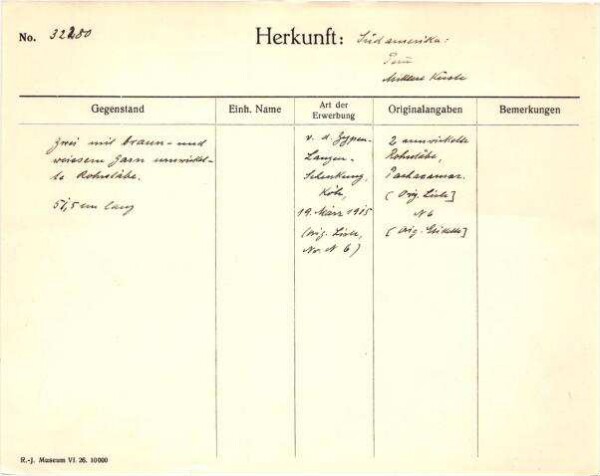 No. 32280
Herkunft: Südamerika:
Peru
Mittlere Küste
Gegenstand
Einh. Name
Art der
Erwerbung
Originalangaben
Bemerkungen
Zwei mit braun- und
weissem Garn umwickel-
te Rohrstäbe.
51,5 cm lang
v. d. Zypen-
Langen-
Schenkung,
Köln,
19. März 1915
(orig. Liste,
No. N 6)
2 umwickelte
Rohrstäbe,
Pachacamac.
(Orig. Liste]
N 6
[Orig. Etikette]
R.-J. Museum VI. 26. 10000